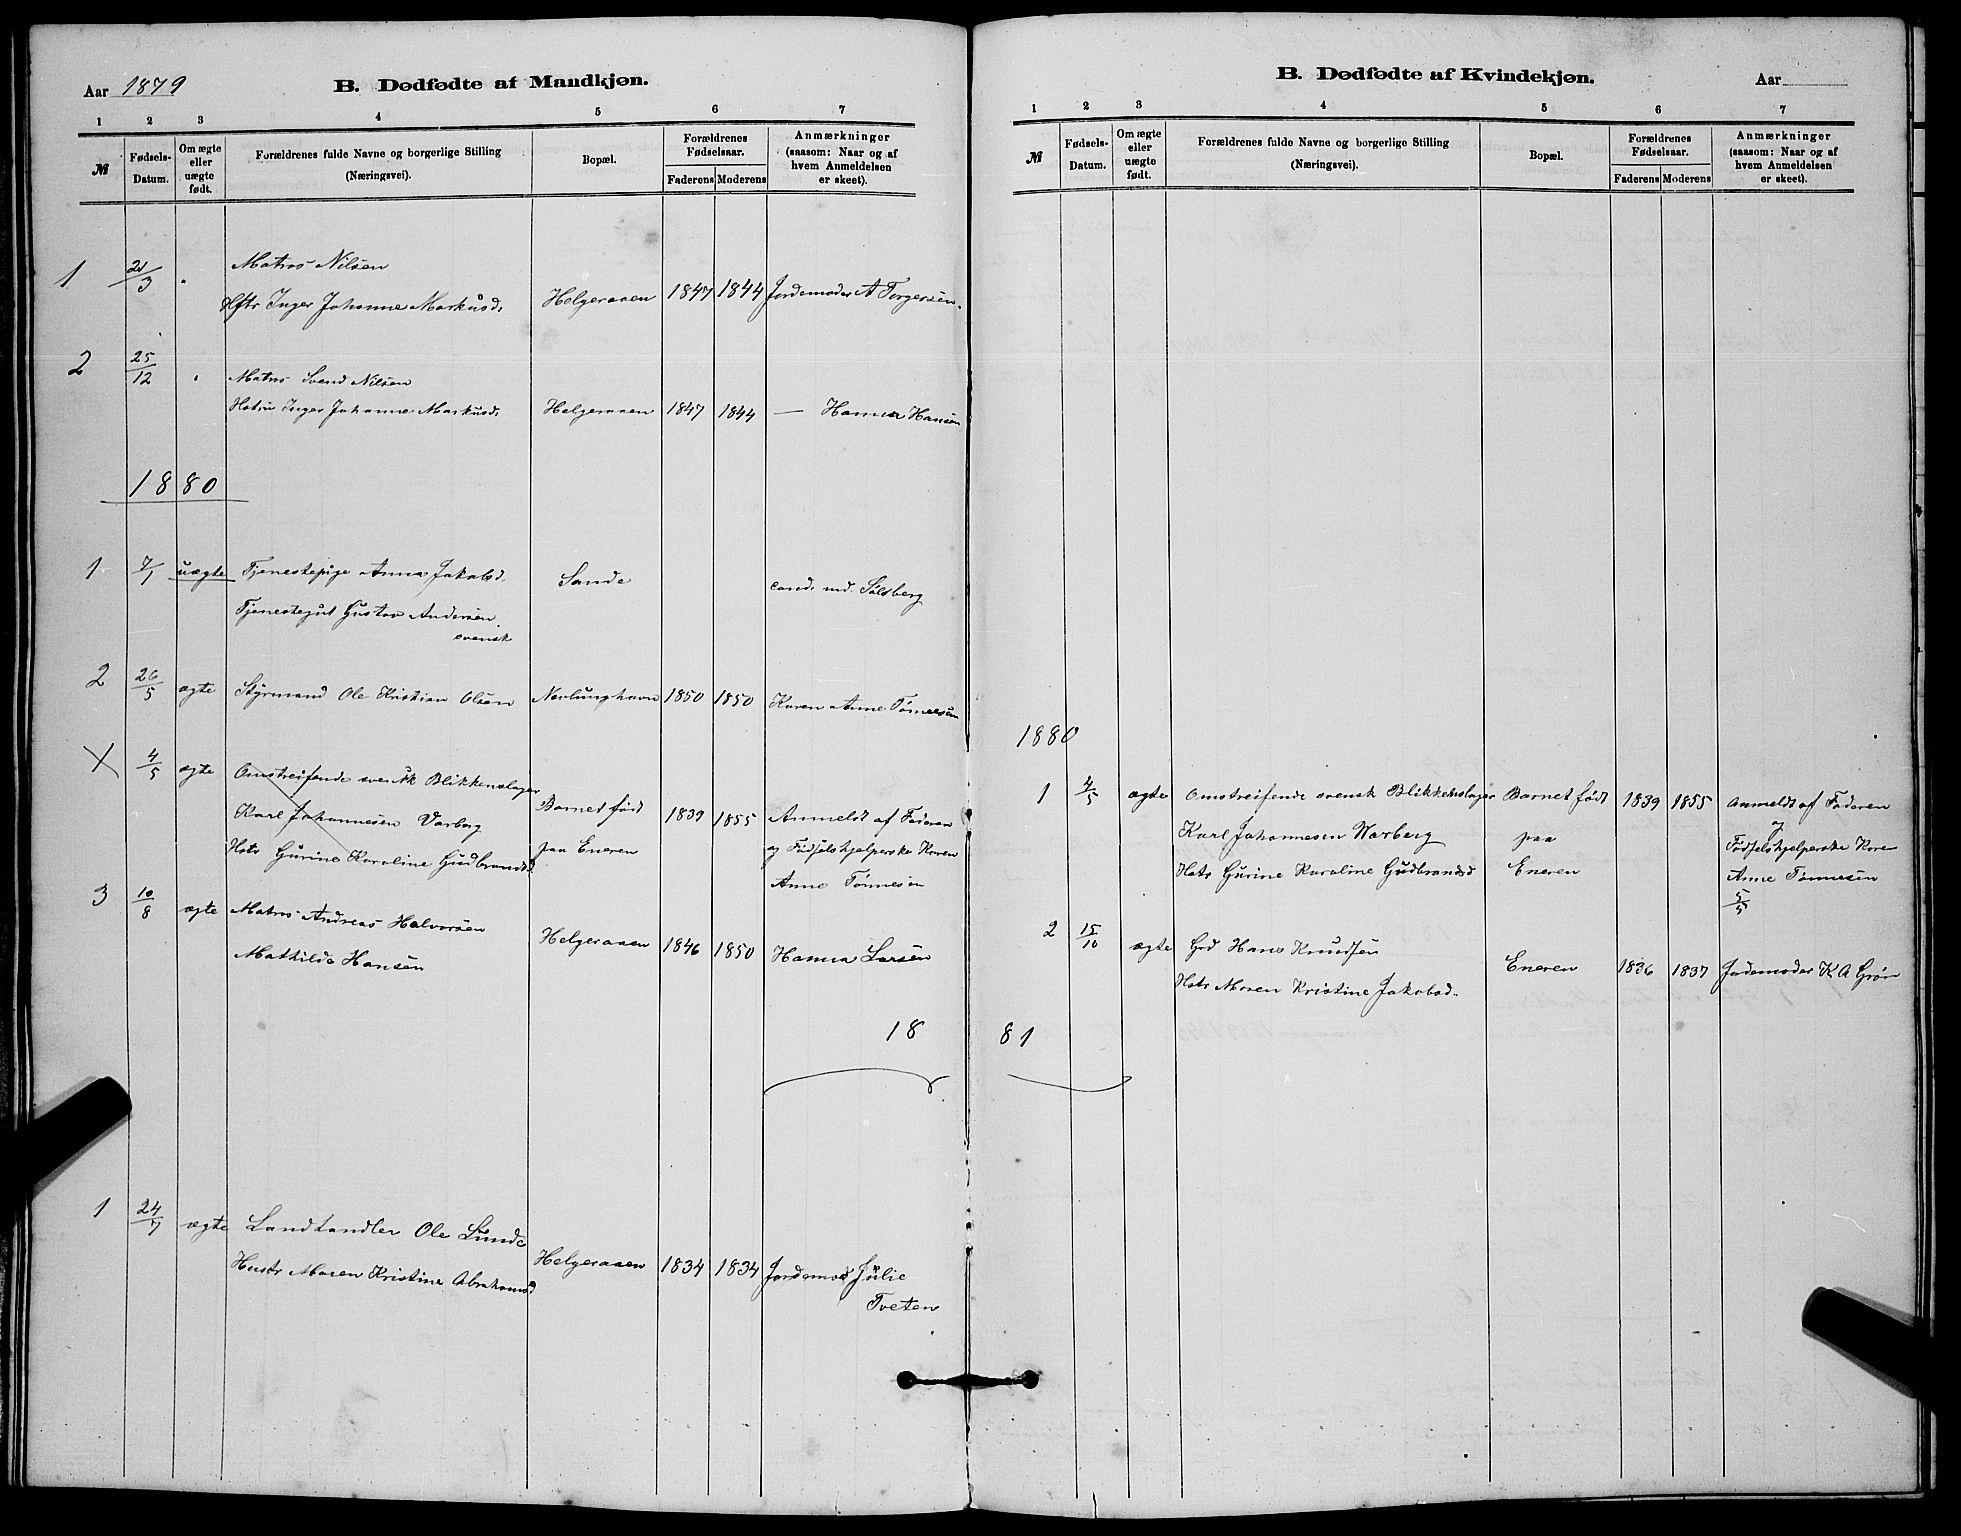 Aar 1879 B. Dødfødte af Mandkjøn.
1 2 3 4 5 6 7
№ Fødsels-Datum. Om ægte eller uægte født. Forældrenes fulde Navne og borgerlige Stilling (Næringsvei). Bopæl. Forældrenes Fødselsaar. Faderens Moderens Anmærkninger (saasom: Naar og af hvem Anmeldelsen er skeet).
1 21/3 " Matros Nilsen
Hstr Inger Johanne Markusd. Helgeraaen 1847 1844 Jordemoder A Torgersen.
2 25/12 " Matros Svend Nilsen
Hstru Inger Johanne Markusd. Helgeraaen 1847 1844 — Hanna Hansen
1880
1 7/1 uægte Tjenestepige Anna Jakobsd. Sande cand. md. Sølsberg
Tjenestegut Gustav Andersen
svensk
2 26/5 ægte Styrmand Ole Kristian Olsen Nevlunghavn 1850 1850 Karen Anne Tønnesen
X 4/5 ægte Omstreifende svensk Blikkenslager
Karl Johannesen Varberg Barnet født 1839 1855 Anmeldt af Faderen
Hstr Gurine Karoline Gudbrandsd paa Eneren og Fødselshjelperske Karen
Anne Tønnesen
3 10/8 ægte Matros Andreas Halvorsen
Mathilde Hansen Helgeraaen 1846 1850 Hanna Larsen
18
1 24/7 ægte Landhandler Ole Lunde
Hustr Maren Kristine Abrahamsd Helgeraaen 1834 1834 Jordemod Julie
Tveten
B. Dødfødte af Kvindekjøn. Aar
1 2 3 4 5 6 7
№ Fødsels-Datum. Om ægte eller uægte født. Forældrenes fulde Navne og borgerlige Stilling (Næringsvei). Bopæl. Forældrenes Fødselsaar. Faderens Moderens Anmærkninger (saasom: Naar og af hvem Anmeldelsen er skeet).
1880
1 4/5 ægte Omstreifende svensk Blikkenslager Barnet født 1839 1855 Anmeldt af Faderen
Karl Johannesen Warberg paa og
Hstr Gurine Karoline Gudbrandsd Eneren Fødselshjelperske Karen
Anne Tønnesen
5/5
2 15/10 ægte Grd Hans Knudsen
Hstr Maren Kristine Jakobsd. Eneren 1836 1837 Jordemoder K A Grøn
81